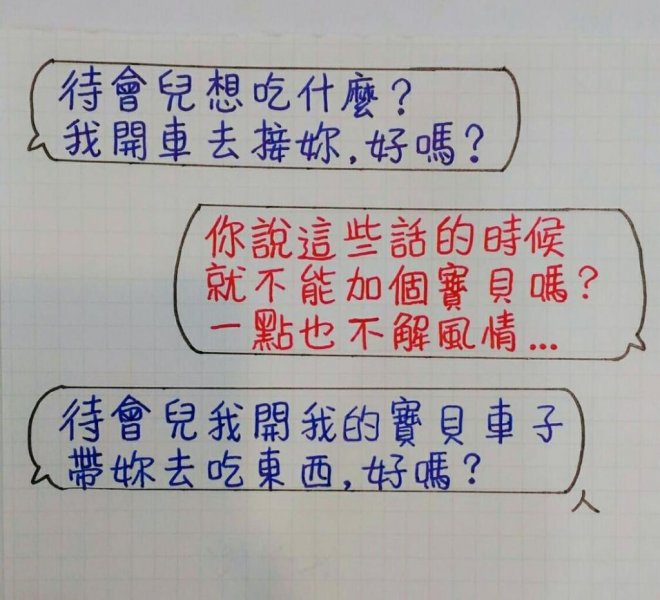 待會兒想吃什麼?
我開車去接妳,好嗎?
你說這些話的時候
就不能加個寶貝嗎?
一點也不解風情...
待會兒我開我的寶貝車子
帶妳去吃東西,好嗎?
人